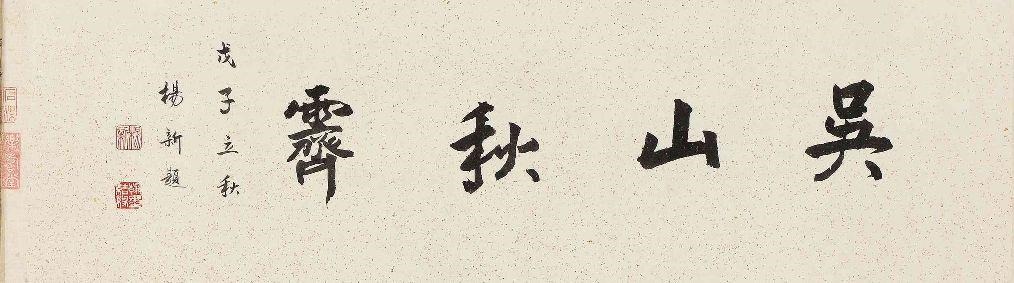 吳山秋霽
戊子立秋
楊新題